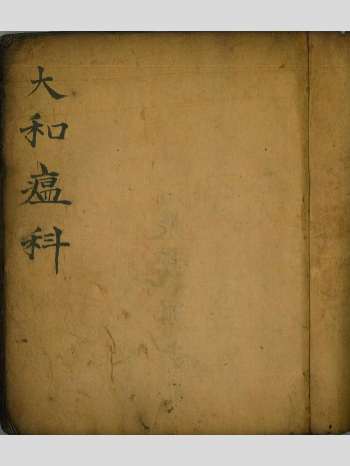 大和瘟科